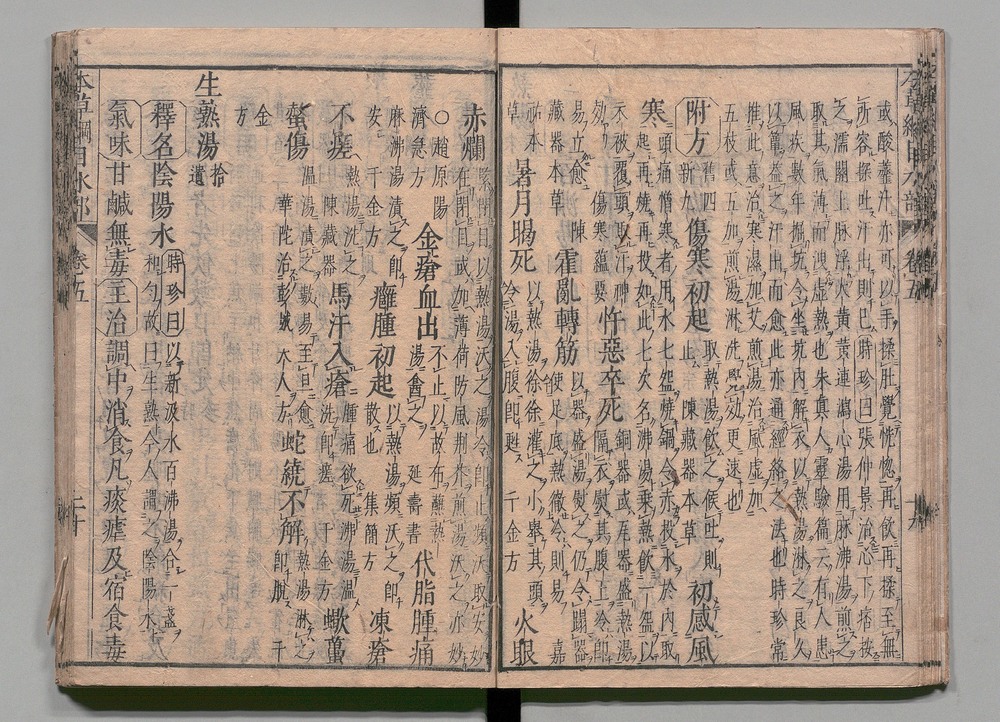 或酸虀汁亦可以手揉肚覺恍惚再飲再揉至無
所容探吐汗出則已時珍曰張仲景治心下痞按
之濡關上脉浮大黄黄連瀉心湯用麻沸湯煎之
取其氣薄而洩虚熱也朱真人靈驗篇云有人患
風疾數年掘坑令坐坑内解衣以熱湯淋之良久
以簟盖之汗出而愈此亦通經絡之法也時珍常
推此意治寒濕加艾煎湯治風虚加
五枝或五加煎湯淋洗覺効更速也
附方
舊四
新九
傷寒初起
取熱湯飲之候吐則
止 陳藏器本草
初感風
寒
頭痛憎寒者用水七盌燒鍋令赤投水於内取
起再燒再投如此七次名沸湯乗熱飲一盌以
衣被覆頭取汗神
効 傷寒蘊要
忤惡卒死
銅器或瓦器盛熱湯
隔衣熨其腹上冷即
易立愈 陳
藏器本草
霍亂轉筋
以器盛湯熨之仍令蹋器
使足底熱徹冷則易
嘉
祐本
草
暑月暍死
以熱湯徐徐灌之小舉其頭
令湯入腹即甦 千金方
火眼
赤爛
緊閉目以熱湯沃之湯冷即止頻沃取安妙
在閉目或加薄荷防風荆芥煎湯沃之亦妙
○趙原陽
濟急方
金瘡血出
不止以故布蘸熱
湯盦之 延壽書
代脂腫痛
麻沸湯漬之即
安 千金方
癰腫初起
以熱湯頻沃之即
散也 集簡方
凍瘡
不瘥
熱湯洗之
陳藏器
馬汗入瘡
腫痛欲死沸湯溫
洗即瘥 千金方
蠍蠆
螫傷
温湯漬之數易至旦愈
華陀治彭城夫人方
蛇繞不解
熱湯淋之
即脱 千
金
方
生熟湯
拾
遺
釋名陰陽水
時珍曰以新汲水百沸湯合一盞
和匀故曰生熟今人謂之陰陽水
氣味甘鹹無毒主治調中消食凡痰瘧及宿食毒
本草綱目水部 卷五